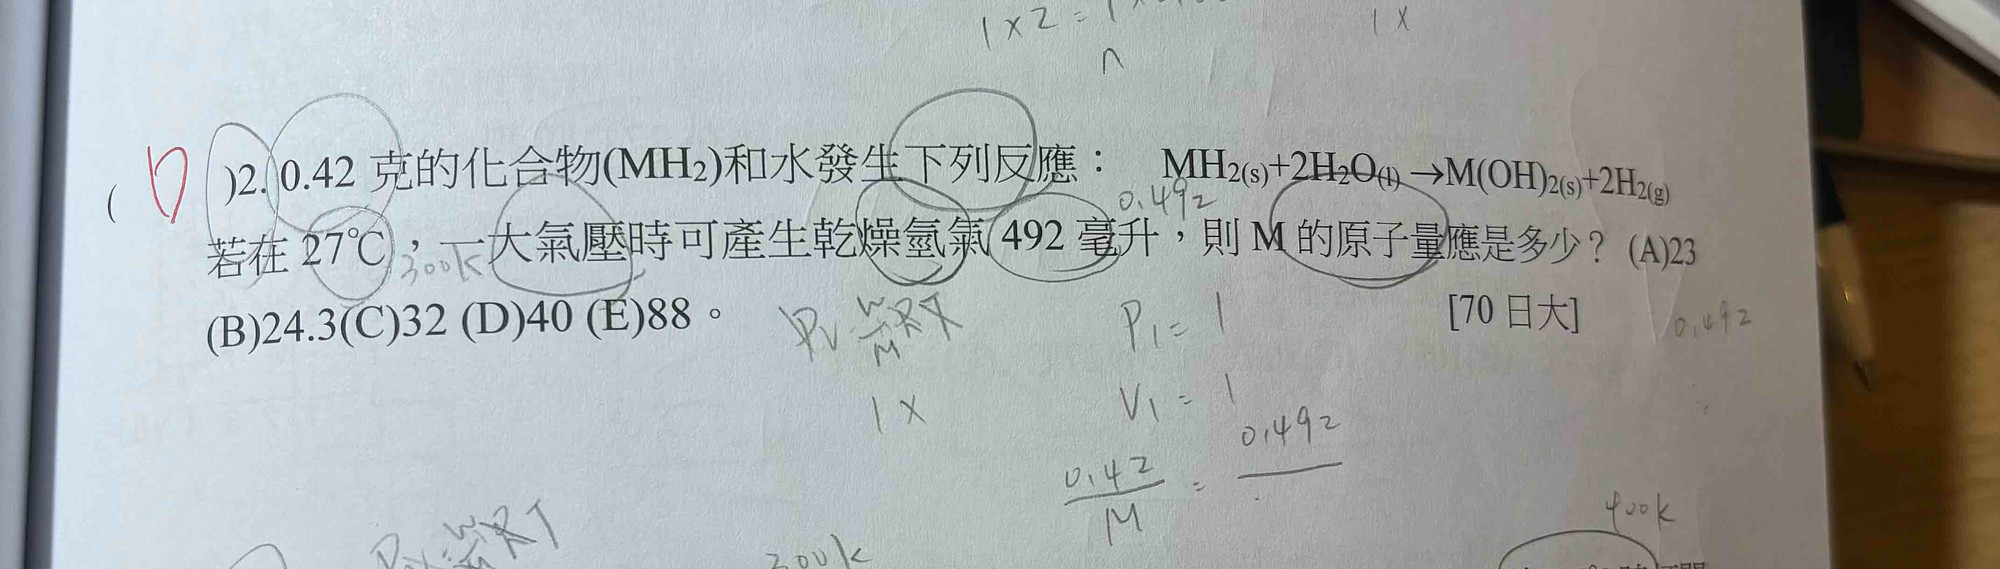 1×2=1×
1×
n
(D)2. 0.42 克的化合物(MH2)和水發生下列反應： MH2(s)+2H2O(l)→M(OH)2(s)+2H2(g)
0.492
若在 27℃，一大氣壓時可產生乾燥氫氣 492 毫升，則 M 的原子量應是多少？ (A)23
300K
(B)24.3(C)32 (D)40 (E)88。 [70 日大]
PV=W/M RT P1=1 0.492
1× V1=1
0.42/M = 0.492
PV=W/M RT 300K 400K